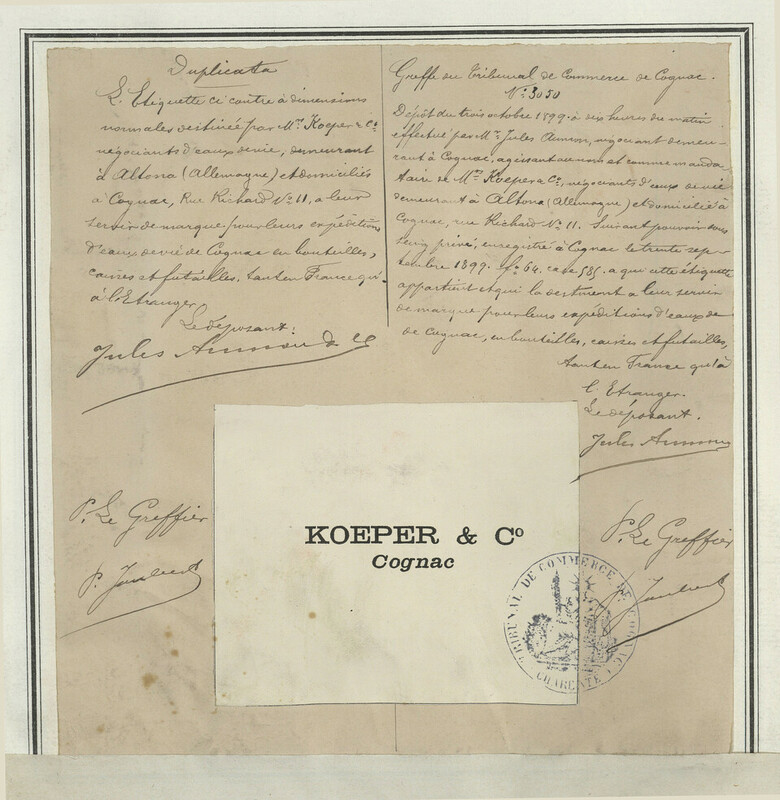 Duplicata
L'Etiquette ci contre à dimensions
normales destinée par Mrs Koeper & Co
négociants d'eaux de vie, demeurant
à Altona (Allemagne) et domiciliés
à Cognac, Rue Richard No 11, a leur
servir de marque pour leurs expéditions
d'eaux de vie de Cognac en bouteilles,
caisses et futailles, tant en France qu'
à l'Etranger
Le déposant:
Jules
P. Le Greffier
Greffe du Tribunal de Commerce de Cognac.
No 3050
Dépôt du trois octobre 1899 à dix heures du matin
effectué par Mr Jules négociant demeu-
rant à Cognac, agissant au nom et comme manda-
taire de Mrs Koeper & Co, négociants d'eaux de vie
demeurant à Altona (Allemagne) et domiciliés à
Cognac, rue Richard No 11. Suivant pouvoir sous
seing privé, enregistré à Cognac le trente sep-
tembre 1899. fo 64. case 585. a qui cette étiquette
appartient et qui la destinent a leur servir
de marque pour leurs expéditions d'eaux de
de Cognac, en bouteilles, caisses et futailles,
tant en France qu'à
l'Etranger.
Le déposant.
Jules
P. Le Greffier
KOEPER & Co
Cognac
TRIBUNAL DE COMMERCE DE COGNAC
CHARENTE